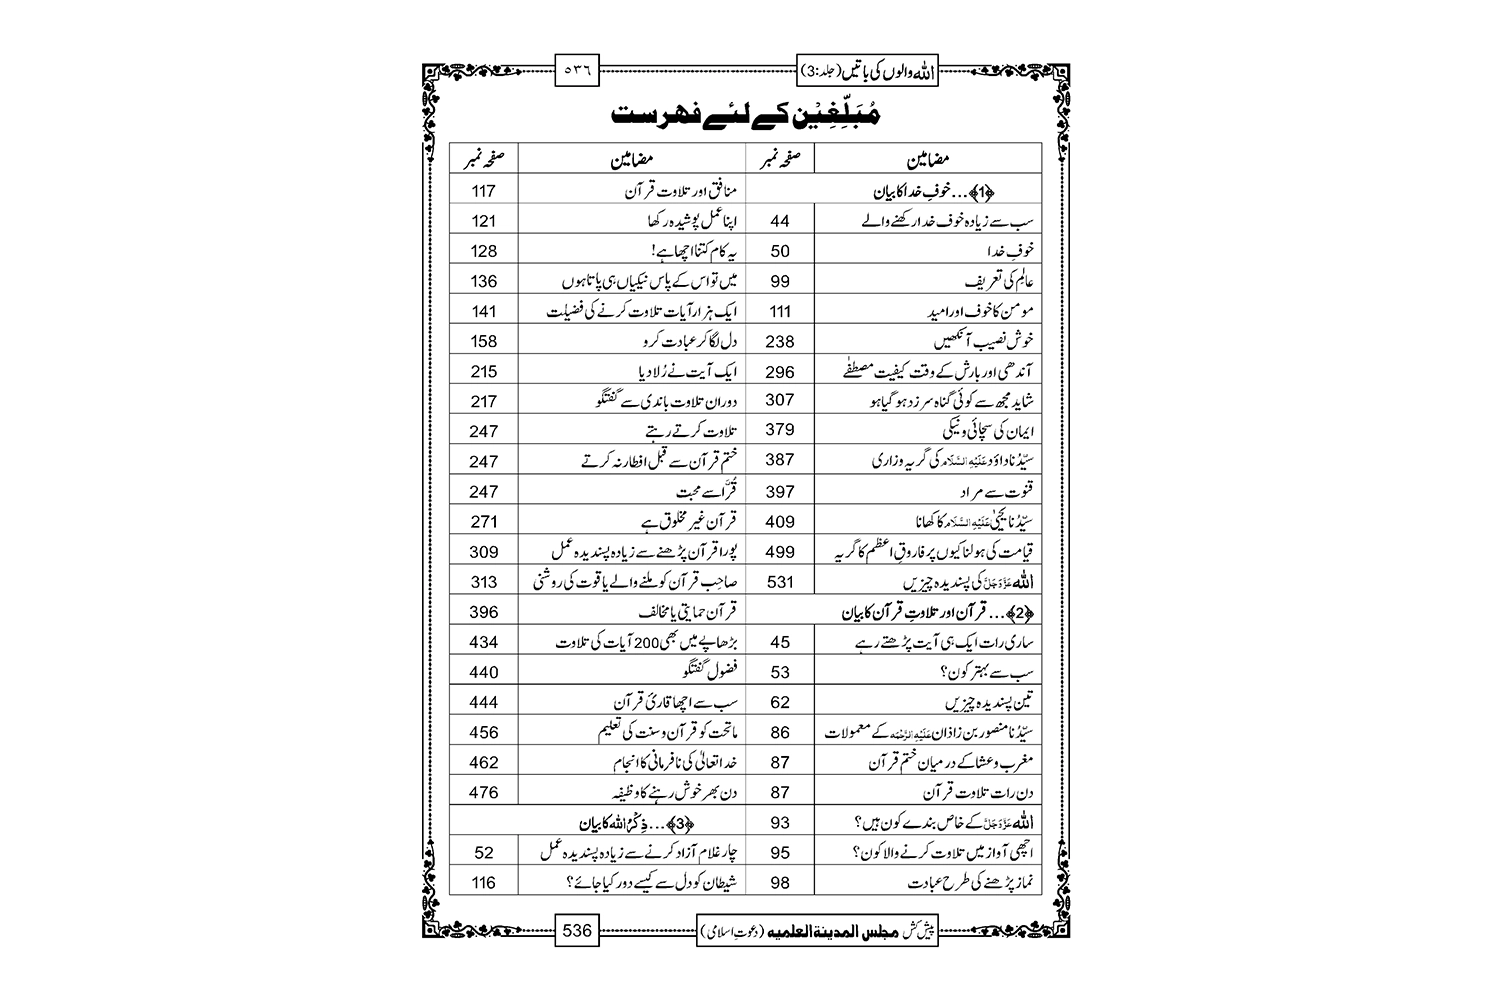 اللہ والوں کی باتیں (جلد:3)
٥٣٦
مُبَلِّغِیْن کے لئے فہرست
مضامین صفحہ نمبر مضامین صفحہ نمبر
﴿1﴾... خوفِ خدا کا بیان
منافق اور تلاوت قرآن 117
سب سے زیادہ خوف خدا رکھنے والے 44 اپنا عمل پوشیدہ رکھا 121
خوفِ خدا 50 یہ کام کتنا اچھا ہے! 128
عالِم کی تعریف 99 میں تو اس کے پاس نیکیاں ہی پاتا ہوں 136
مومن کا خوف اور امید 111 ایک ہزار آیات تلاوت کرنے کی فضیلت 141
خوش نصیب آنکھیں 238 دل لگا کر عبادت کرو 158
آندھی اور بارش کے وقت کیفیت مصطفٰے 296 ایک آیت نے رُلا دیا 215
شاید مجھ سے کوئی گناہ سرزد ہو گیا ہو 307 دوران تلاوت باندی سے گفتگو 217
ایمان کی سچائی و نیکی 379 تلاوت کرتے رہتے 247
سیِّدُنا داؤد عَلَیْہِ السَّلَام کی گریہ وزاری 387 ختم قرآن سے قبل افطار نہ کرتے 247
قنوت سے مراد 397 قُرَّا سے محبت 247
سیِّدُنا یحییٰ عَلَیْہِ السَّلَام کا کھانا 409 قرآن غیر مخلوق ہے 271
قیامت کی ہولناکیوں پر فاروقِ اعظم کا گریہ 499 پورا قرآن پڑھنے سے زیادہ پسندیدہ عمل 309
اللہ عَزَّوَجَلَّ کی پسندیدہ چیزیں 531 صاحِب قرآن کو ملنے والے یاقوت کی روشنی 313
﴿2﴾... قرآن اور تلاوتِ قرآن کا بیان
قرآن حمایتی یا مخالف 396
ساری رات ایک ہی آیت پڑھتے رہے 45 بڑھاپے میں بھی 200 آیات کی تلاوت 434
سب سے بہتر کون؟ 53 فضول گفتگو 440
تین پسندیدہ چیزیں 62 سب سے اچھا قاریٔ قرآن 444
سیِّدُنا منصور بن زاذان عَلَیْہِ الرَّحْمَہ کے معمولات 86 ماتحت کو قرآن و سنت کی تعلیم 456
مغرب و عشا کے درمیان ختم قرآن 87 خدا تعالیٰ کی نافرمانی کا انجام 462
دن رات تلاوت قرآن 87 دن بھر خوش رہنے کا وظیفہ 476
اللہ عَزَّوَجَلَّ کے خاص بندے کون ہیں؟ 93 ﴿3﴾... ذِکْرُ اللہ کا بیان
اچھی آواز میں تلاوت کرنے والا کون؟ 95 چار غلام آزاد کرنے سے زیادہ پسندیدہ عمل 52
نماز پڑھنے کی طرح عبادت 98 شیطان کو دل سے کیسے دور کیا جائے؟ 116
پیش کش مجلس المدینة العلمیه (دعوتِ اسلامی)
536